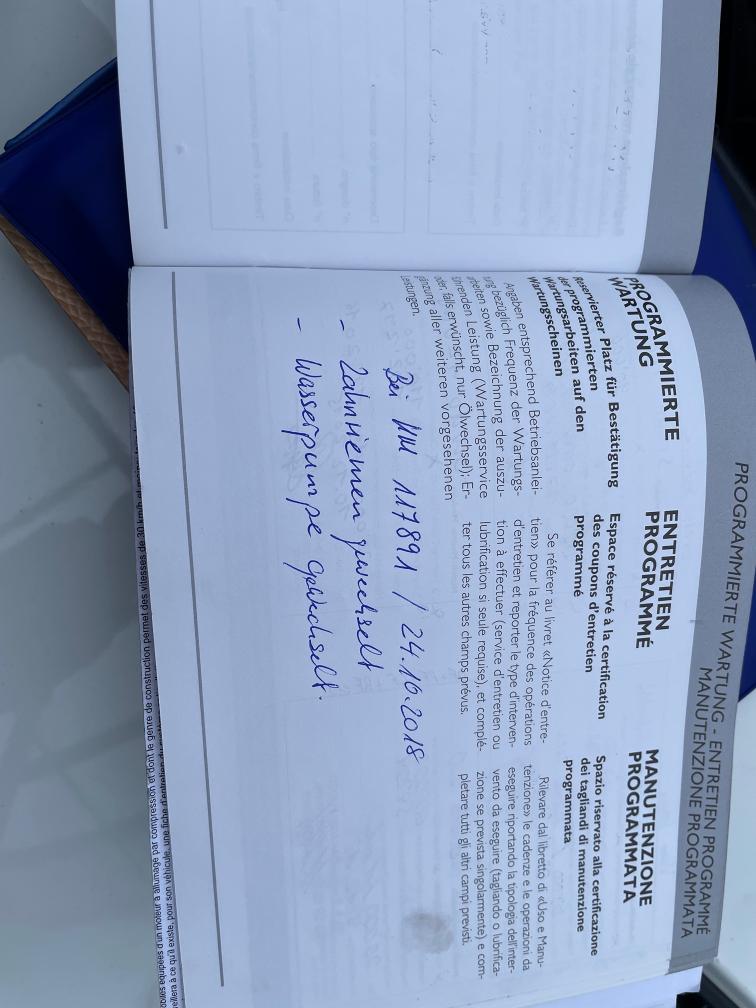 PROGRAMMIERTE WARTUNG - ENTRETIEN PROGRAMMÉ
MANUTENZIONE PROGRAMMATA
PROGRAMMIERTE
WARTUNG
Reservierter Platz für Bestätigung
der programmierten
Wartungsarbeiten auf den
Wartungsscheinen
Angaben entsprechend Betriebsanlei-
tung bezüglich Frequenz der Wartungs-
arbeiten sowie Bezeichnung der auszu-
führenden Leistung (Wartungsservice
oder, falls erwünscht, nur Ölwechsel); Er-
gänzung aller weiteren vorgesehenen
Leistungen.
ENTRETIEN
PROGRAMMÉ
Espace réservé à la certification
des coupons d'entretien
programmé
Se référer au livret «Notice d'entre-
tien» pour la fréquence des opérations
d'entretien et reporter le type d'interven-
tion à effectuer (service d'entretien ou
lubrification si seule requise), et complé-
ter tous les autres champs prévus.
MANUTENZIONE
PROGRAMMATA
Spazio riservato alla certificazione
dei tagliandi di manutenzione
programmata
Rilevare dal libretto di «Uso e Manu-
tenzione» le cadenze e le operazioni da
eseguire riportando la tipologia dell'inter-
vento da eseguire (tagliando o lubrifica-
zione se prevista singolarmente) e com-
pletare tutti gli altri campi previsti.
Bei KM 117891 / 24.10.2018
- Zahnriemen gewechselt
- Wasserpumpe gewechselt.
de genre de construction permet des vitesses de 30 km/h
à moteur à allumage par compression et dont le genre
veillera à ce qu'il existe, pour son véhicule, une fiche d'entretien